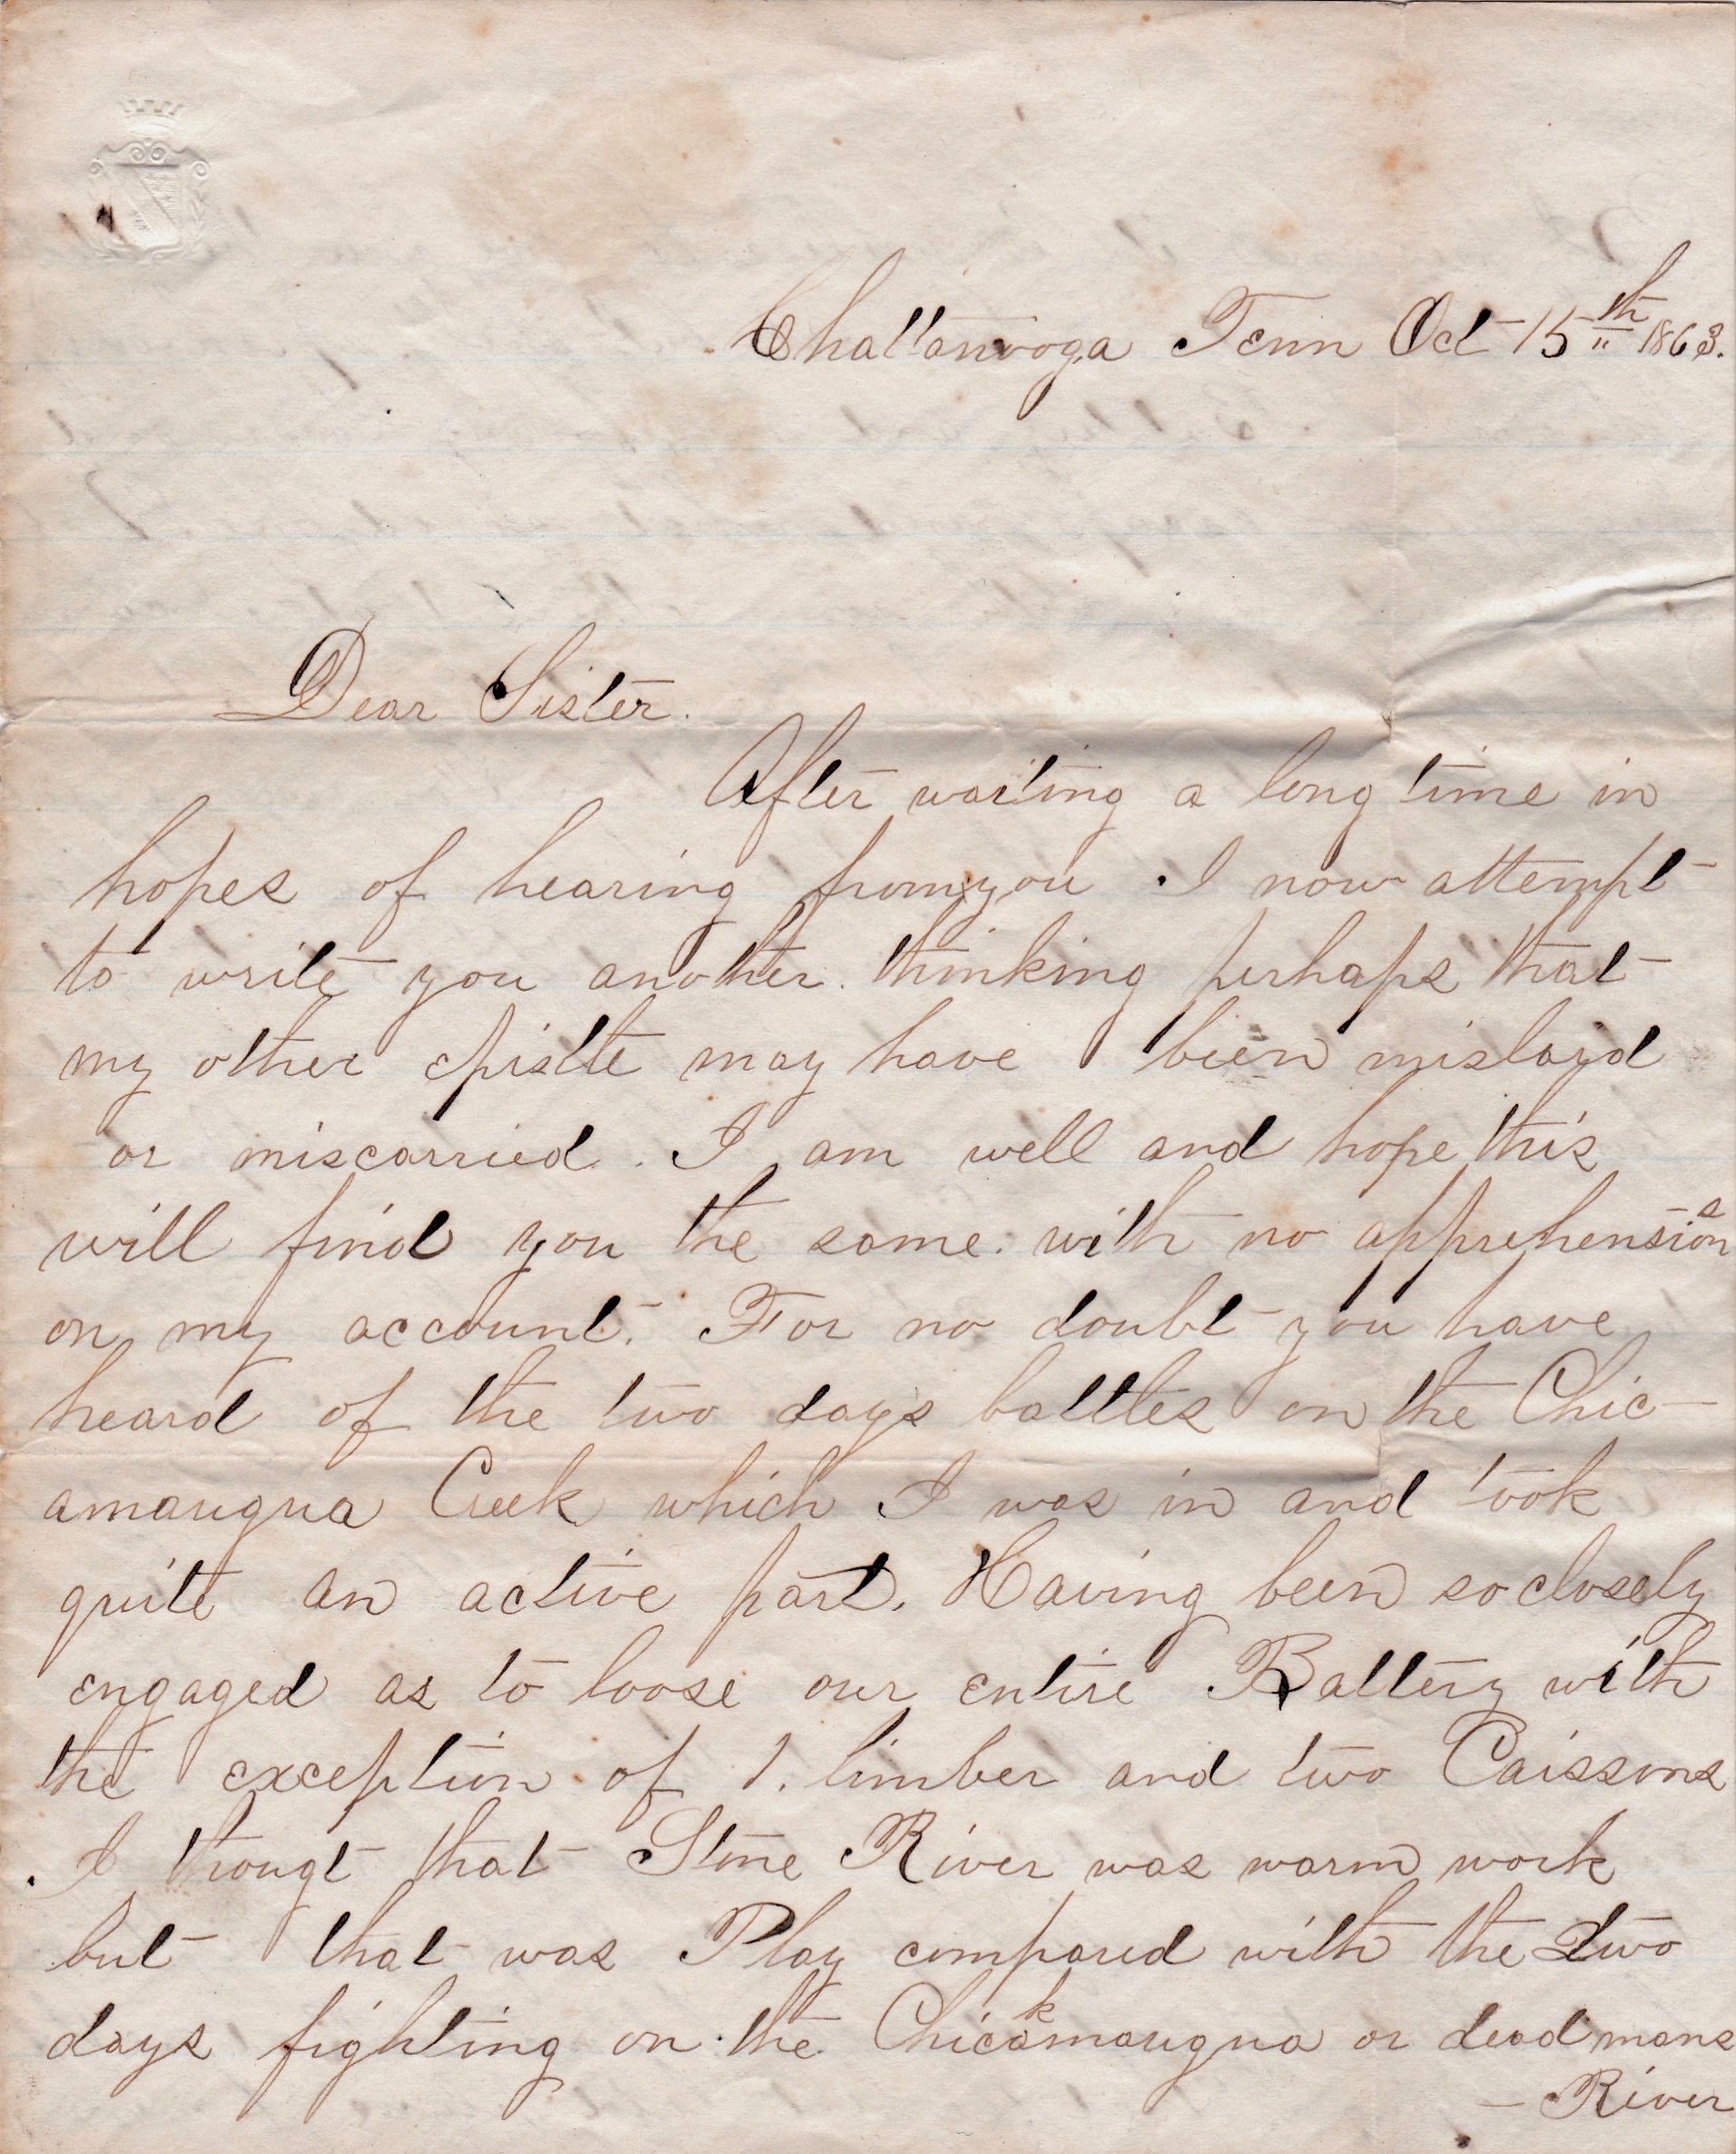 Chattanooga Tenn Oct 15th 1863.
Dear Sister.
After waiting a long time in
hopes of hearing from you . I now attempt
to write you another. thinking perhaps that
my other epistte may have been mislayd
or miscarried. I am well and hope this
will find you the same. with no apprehensions
on my account. For no doubt you have
heard of the two days battles on the Chic-
amaugua Creek which I was in and took
quite an active part. Having been so closely
engaged as to loose our entire Battery with
the exception of 1. limber and two Caissons
. I thougt that Stone River was warm work
but that was Play compared with the two
days fighting on the Chickamaugua or dead mans
- River